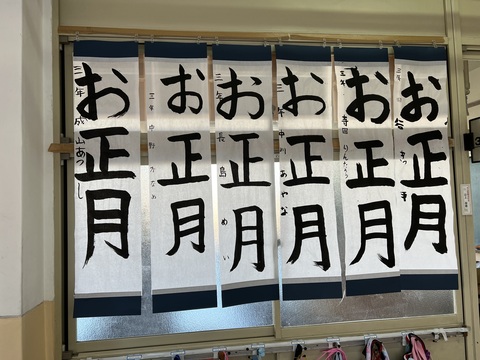 お正月
三年 成山あつし
お正月
三年
お正月
三年 長島 めい
お正月
三年 中川 あやな
お正月
三年 寺田 りんたろう
お正月
三年